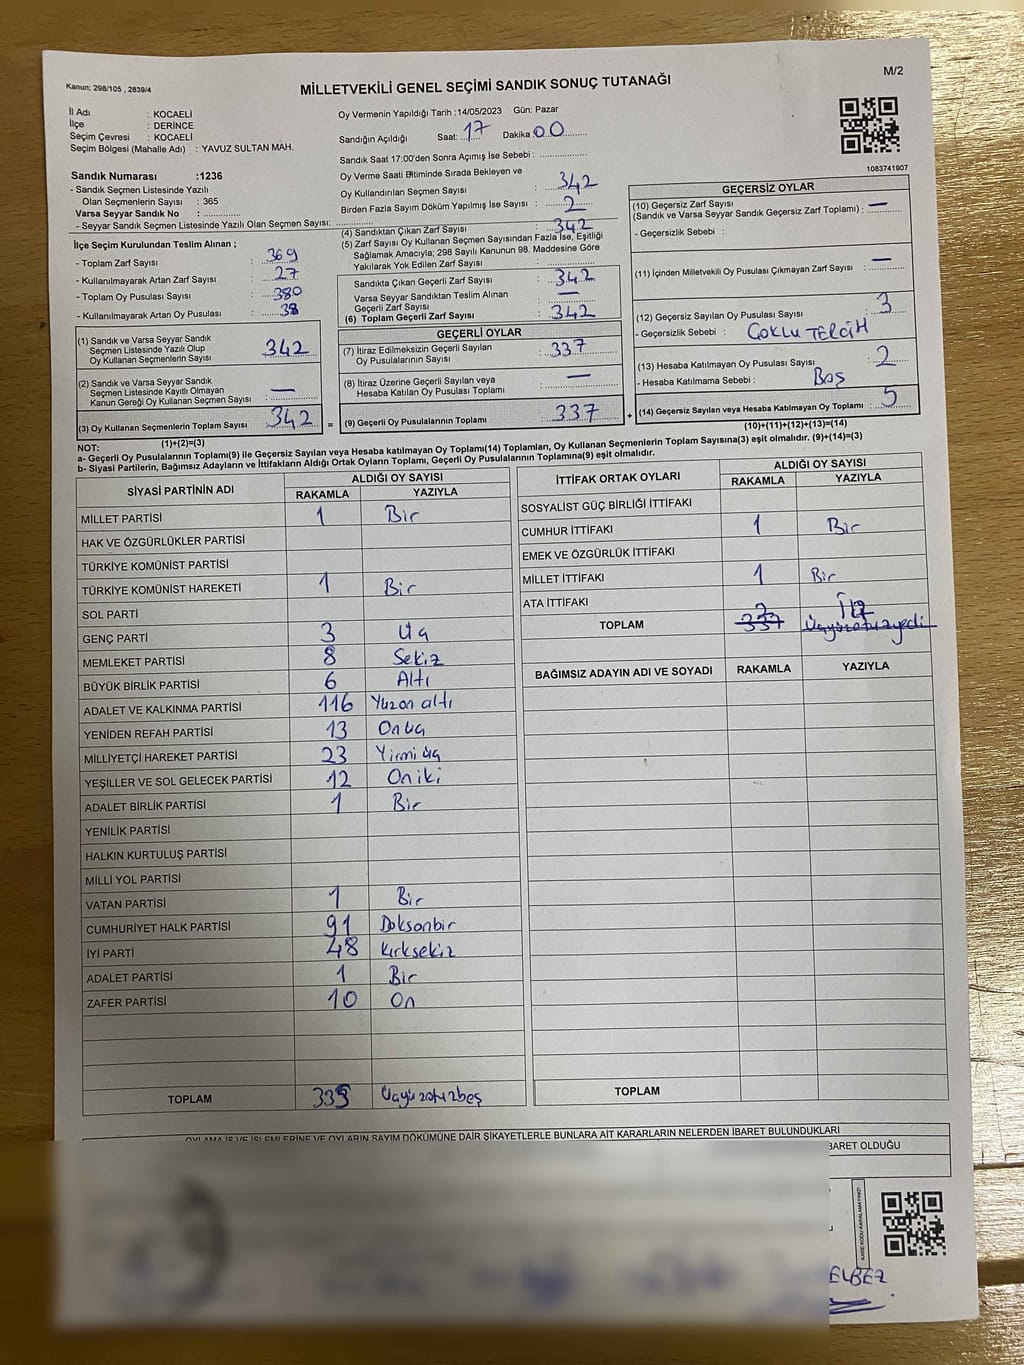 Kanun: 298/105 , 2839/4
MİLLETVEKİLİ GENEL SEÇİMİ SANDIK SONUÇ TUTANAĞI
M/2
İl Adı : KOCAELİ
İlçe : DERİNCE
Seçim Çevresi : KOCAELİ
Seçim Bölgesi (Mahalle Adı) : YAVUZ SULTAN MAH.
Oy Vermenin Yapıldığı Tarih :14/05/2023 Gün: Pazar
Sandığın Açıldığı Saat: 17 Dakika 00
Sandık Saat 17:00'den Sonra Açmış İse Sebebi :
Oy Verme Saati Bitiminde Sırada Bekleyen ve
Oy Kullandırılan Seçmen Sayısı : 342
Birden Fazla Sayım Döküm Yapılmış İse Sayısı : 2
1083741907
Sandık Numarası :1236
- Sandık Seçmen Listesinde Yazılı
Olan Seçmenlerin Sayısı : 365
Varsa Seyyar Sandık No :
- Seyyar Sandık Seçmen Listesinde Yazılı Olan Seçmen Sayısı:
İlçe Seçim Kurulundan Teslim Alınan ;
- Toplam Zarf Sayısı : 369
- Kullanılmayarak Artan Zarf Sayısı : 27
- Toplam Oy Pusulası Sayısı : 380
- Kullanılmayarak Artan Oy Pusulası : 38
(1) Sandık ve Varsa Seyyar Sandık
Seçmen Listesinde Yazılı Olup
Oy Kullanan Seçmenlerin Sayısı : 342
(2) Sandık ve Varsa Seyyar Sandık
Seçmen Listesinde Kayıtlı Olmayan
Kanun Gereği Oy Kullanan Seçmen Sayısı : —
(3) Oy Kullanan Seçmenlerin Toplam Sayısı : 342
(1)+(2)=(3)
(4) Sandıktan Çıkan Zarf Sayısı : 342
(5) Zarf Sayısı Oy Kullanan Seçmen Sayısından Fazla İse, Eşitliği
Sağlamak Amacıyla; 298 Sayılı Kanunun 98. Maddesine Göre
Yakılarak Yok Edilen Zarf Sayısı :
Sandıkta Çıkan Geçerli Zarf Sayısı : 342
Varsa Seyyar Sandıktan Teslim Alınan
Geçerli Zarf Sayısı : —
(6) Toplam Geçerli Zarf Sayısı : 342
GEÇERLİ OYLAR
(7) İtiraz Edilmeksizin Geçerli Sayılan
Oy Pusulalarının Sayısı : 337
(8) İtiraz Üzerine Geçerli Sayılan veya
Hesaba Katılan Oy Pusulası Toplamı : —
= (9) Geçerli Oy Pusulalarının Toplamı : 337 +
GEÇERSİZ OYLAR
(10) Geçersiz Zarf Sayısı
(Sandık ve Varsa Seyyar Sandık Geçersiz Zarf Toplamı) : —
- Geçersizlik Sebebi :
(11) İçinden Milletvekili Oy Pusulası Çıkmayan Zarf Sayısı : —
(12) Geçersiz Sayılan Oy Pusulası Sayısı : 3
- Geçersizlik Sebebi : ÇOKLU TERCİH
(13) Hesaba Katılmayan Oy Pusulası Sayısı : 2
- Hesaba Katılmama Sebebi : Boş
(14) Geçersiz Sayılan veya Hesaba Katılmayan Oy Toplamı : 5
(10)+(11)+(12)+(13)=(14)
NOT:
a- Geçerli Oy Pusulalarının Toplamı(9) ile Geçersiz Sayılan veya Hesaba katılmayan Oy Toplamı(14) Toplamları, Oy Kullanan Seçmenlerin Toplam Sayısına(3) eşit olmalıdır. (9)+(14)=(3)
b- Siyasi Partilerin, Bağımsız Adayların ve İttifakların Aldığı Ortak Oyların Toplamı, Geçerli Oy Pusulalarının Toplamına(9) eşit olmalıdır.
SİYASİ PARTİNİN ADI ALDIĞI OY SAYISI
RAKAMLA YAZIYLA
MİLLET PARTİSİ 1 Bir
HAK VE ÖZGÜRLÜKLER PARTİSİ
TÜRKİYE KOMÜNİST PARTİSİ
TÜRKİYE KOMÜNİST HAREKETİ 1 Bir
SOL PARTİ
GENÇ PARTİ 3 Üç
MEMLEKET PARTİSİ 8 Sekiz
BÜYÜK BİRLİK PARTİSİ 6 Altı
ADALET VE KALKINMA PARTİSİ 116 Yüzon altı
YENİDEN REFAH PARTİSİ 13 Onüç
MİLLİYETÇİ HAREKET PARTİSİ 23 Yirmi üç
YEŞİLLER VE SOL GELECEK PARTİSİ 12 Oniki
ADALET BİRLİK PARTİSİ 1 Bir
YENİLİK PARTİSİ
HALKIN KURTULUŞ PARTİSİ
MİLLİ YOL PARTİSİ
VATAN PARTİSİ 1 Bir
CUMHURİYET HALK PARTİSİ 91 Doksanbir
İYİ PARTİ 48 Kırksekiz
ADALET PARTİSİ 1 Bir
ZAFER PARTİSİ 10 On
TOPLAM 335 Üçyüzotuzbeş
İTTİFAK ORTAK OYLARI ALDIĞI OY SAYISI
RAKAMLA YAZIYLA
SOSYALİST GÜÇ BİRLİĞİ İTTİFAKI
CUMHUR İTTİFAKI 1 Bir
EMEK VE ÖZGÜRLÜK İTTİFAKI
MİLLET İTTİFAKI 1 Bir
ATA İTTİFAKI
2 İki
TOPLAM 337 Üçyüzotuzyedi
BAĞIMSIZ ADAYIN ADI VE SOYADI RAKAMLA YAZIYLA
TOPLAM
OYLAMA İŞ VE İŞLEMLERİNE VE OYLARIN SAYIM DÖKÜMÜNE DAİR ŞİKAYETLERLE BUNLARA AİT KARARLARIN NELERDEN İBARET BULUNDUKLARI
BARET OLDUĞU
KARE KODU KARALAMAYINIZ!
ELBEZ